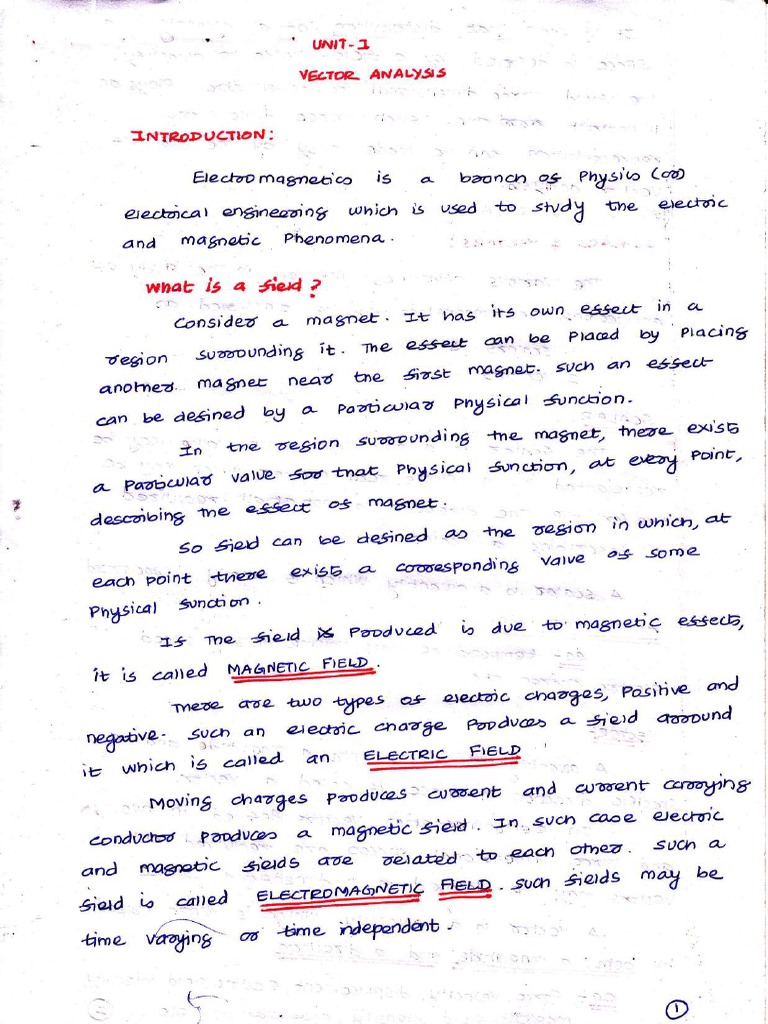 UNIT-1
VECTOR ANALYSIS
INTRODUCTION:
Electromagnetics is a branch of Physics (or)
electrical engineering which is used to study the electric
and magnetic Phenomena.
What is a field?
Consider a magnet. It has its own effect in a
region surrounding it. The effect can be Placed by Placing
another magnet near the first magnet. Such an effect
can be defined by a Particular Physical function.
In the region surrounding the magnet, there exists
a Particular value for that Physical function, at every Point,
describing the effect of magnet.
So field can be defined as the region in which, at
each point there exists a corresponding value of some
Physical function.
If the field is Produced is due to magnetic effects,
it is called MAGNETIC FIELD.
There are two types of electric charges, Positive and
negative. Such an electric charge Produces a field arround
it which is called an ELECTRIC FIELD
Moving charges Produces current and current carrying
conductor Produces a magnetic field. In such case electric
and magnetic fields are related to each other. Such a
field is called ELECTROMAGNETIC FIELD. Such fields may be
time varying or time independent.
1